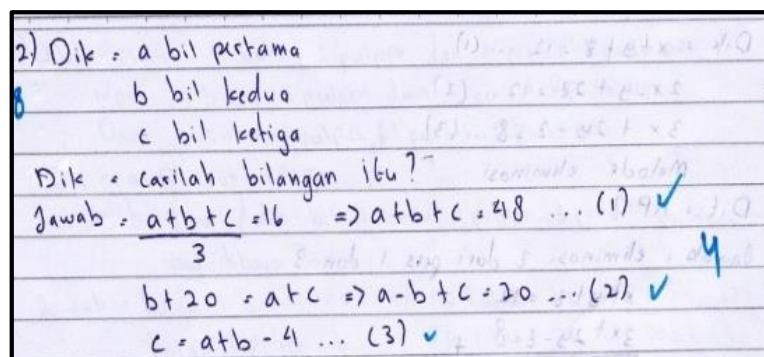 2) Dik = a bil pertama
8 b bil kedua
c bil ketiga
Dik = carilah bilangan itu?
Jawab = a+b+c = 16 => a+b+c = 48 ... (1) ✓
3
4
b+20 = a+c => a-b+c = 20 ... (2) ✓
c = a+b-4 ... (3) ✓